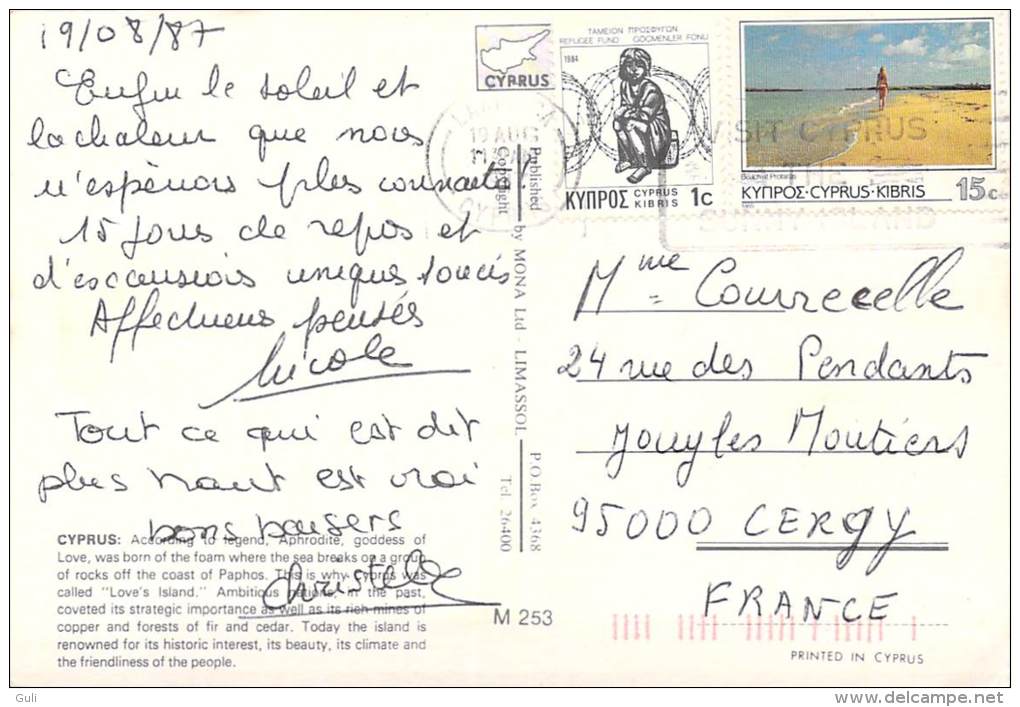 19/08/87
Enfin le soleil et
la chaleur que nous
n'espérions plus connaitre!
15 jours de repos et
d'excursions uniques soucis
Affectueuses pensées
Nicole
Tout ce qui est dit
plus haut est vrai
bons baisers
Christelle
CYPRUS: According to legend, Aphrodite, goddess of
Love, was born of the foam where the sea breaks on a group
of rocks off the coast of Paphos. This is why Cyprus was
called "Love's Island." Ambitious nations, in the past,
coveted its strategic importance as well as its rich mines of
copper and forests of fir and cedar. Today the island is
renowned for its historic interest, its beauty, its climate and
the friendliness of the people.
Published by MONA Ltd - LIMASSOL P.O.Box 4368
Copyright Tel. 26400
M 253
CYPRUS
19 AUG
ΤΑΜΕΙΟΝ ΠΡΟΣΦΥΓΩΝ
REFUGEE FUND GÖÇMENLER FONU
1984
ΚΥΠΡΟΣ CYPRUS KIBRIS 1c
Beach at Protaras
ΚΥΠΡΟΣ·CYPRUS·KIBRIS 15c
1985
VISIT CYPRUS
THE
SUNNY ISLAND
Mme Courrecelle
24 rue des Pendants
Jouy les Moutiers
95000 CERGY
FRANCE
PRINTED IN CYPRUS
Guli
delcampe.net